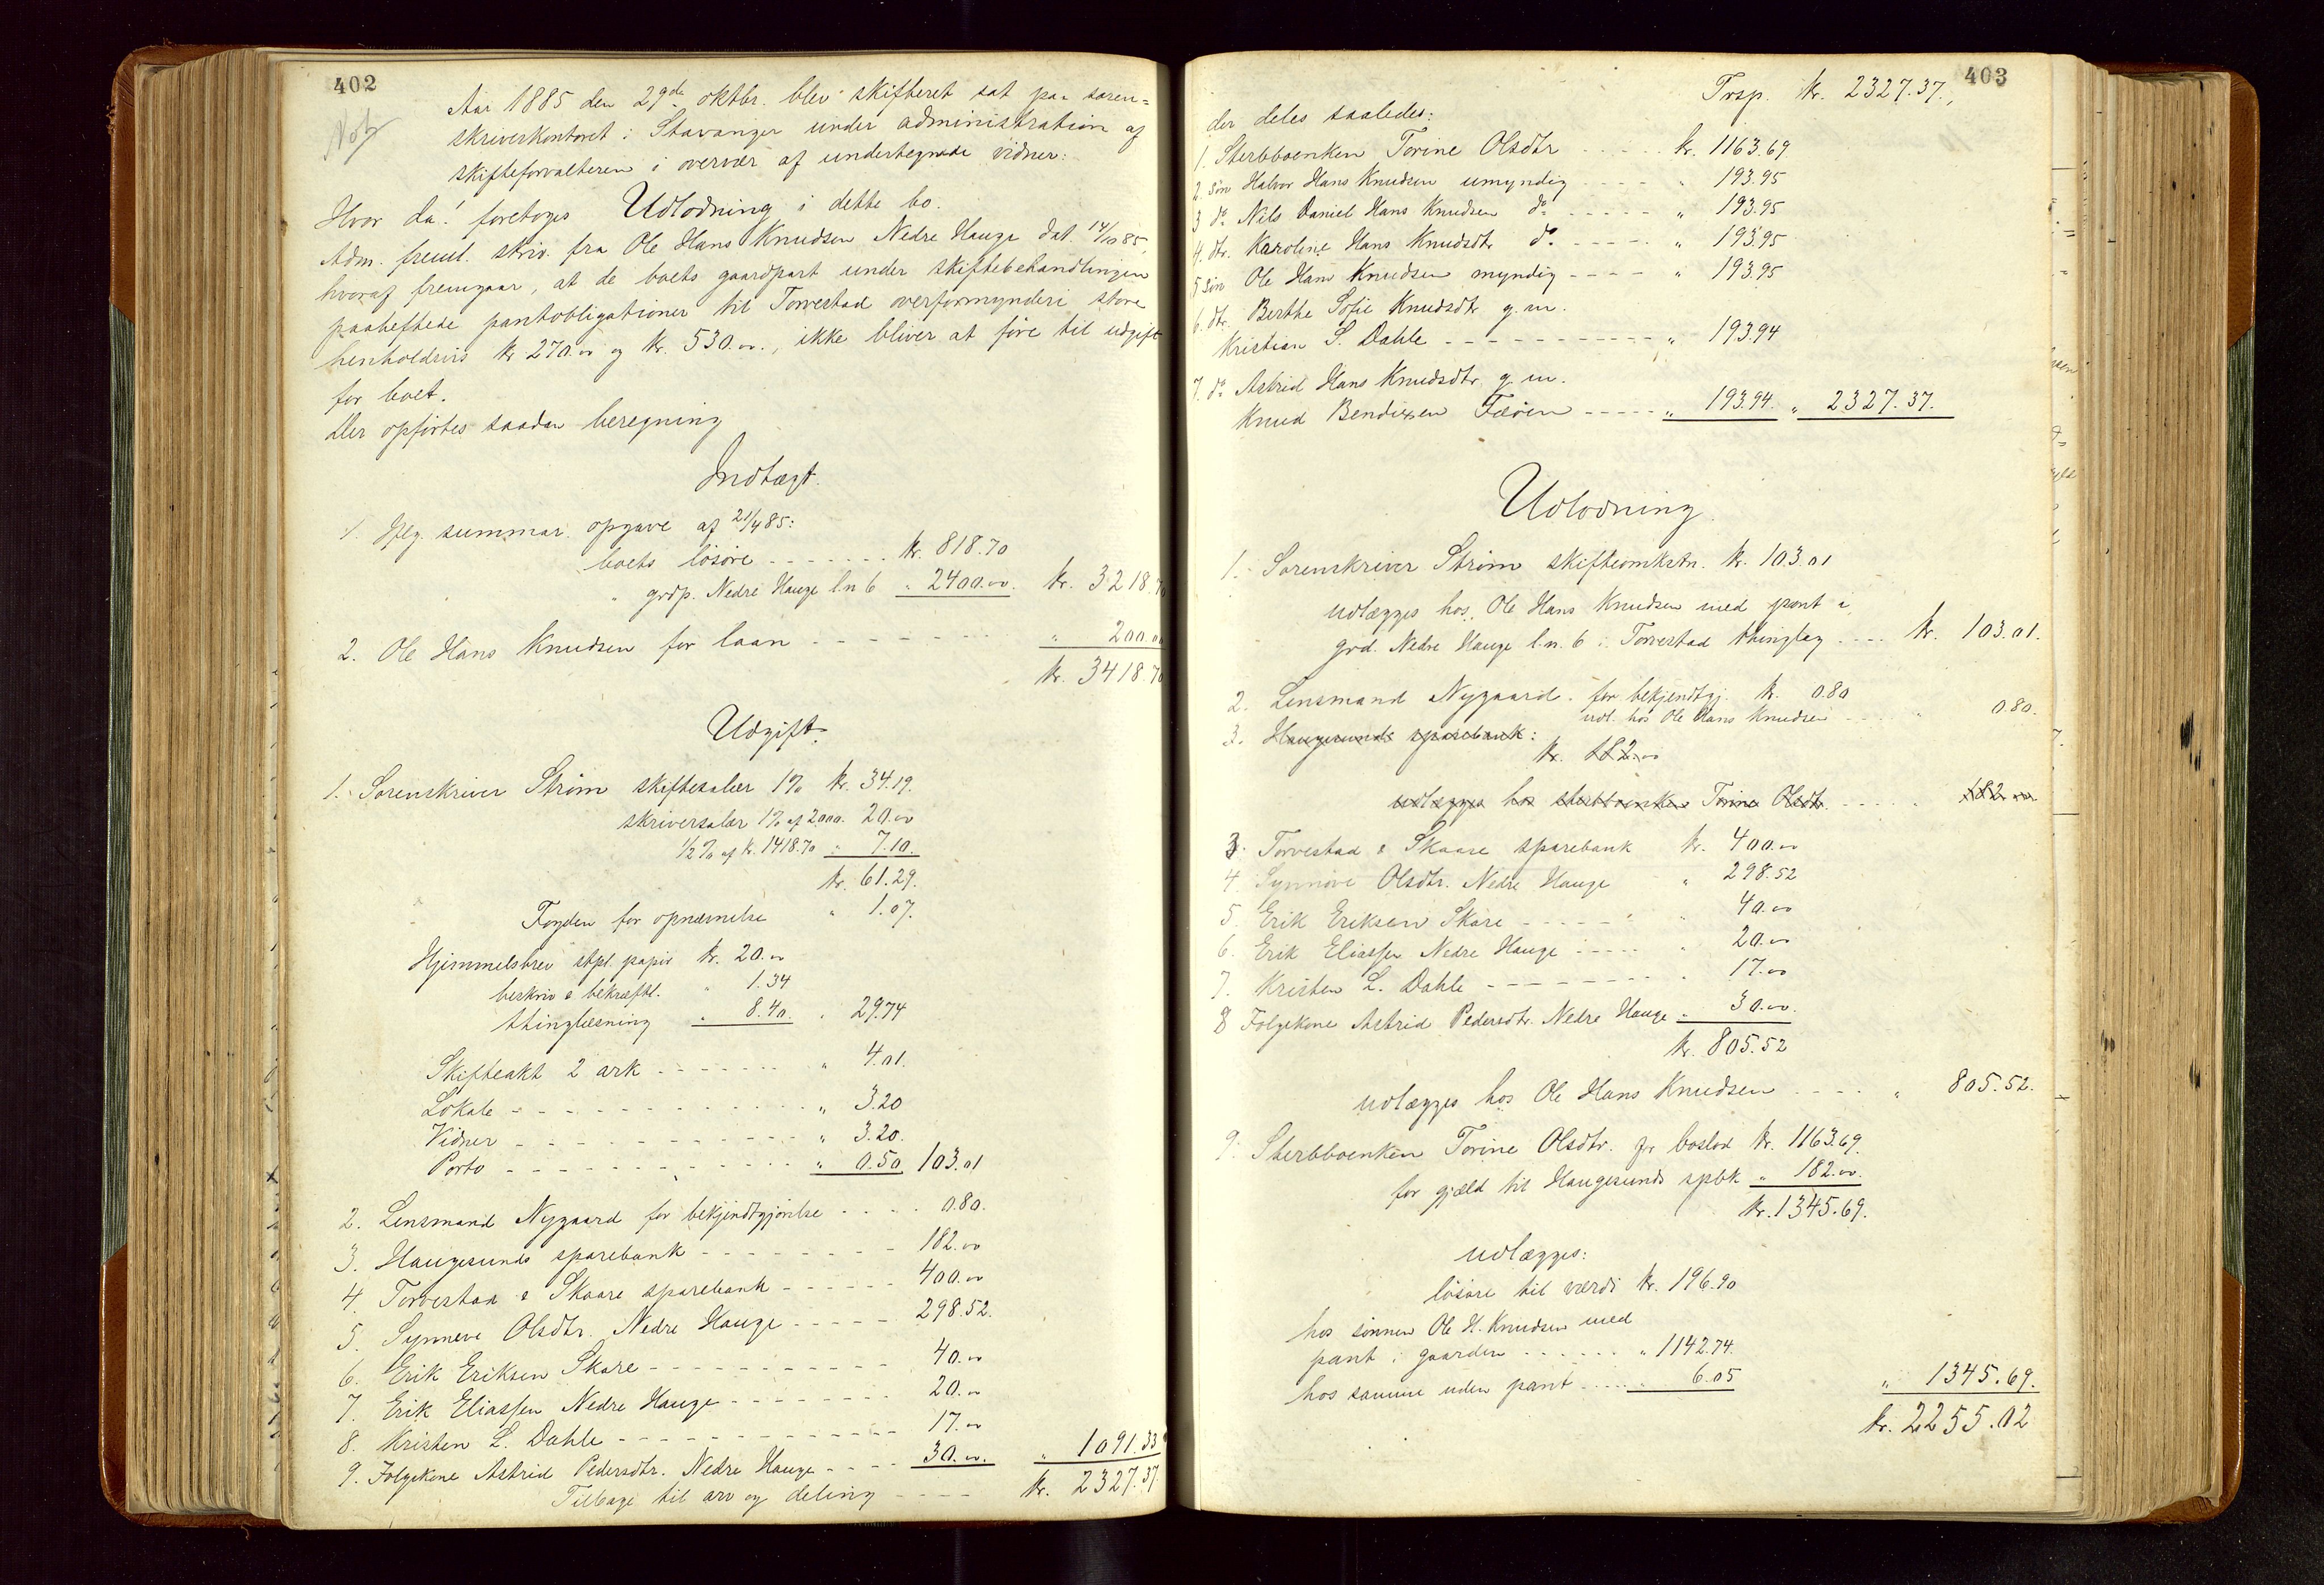 402
Not
Aar 1885 den 29de oktbr. blev skifteret sat paa soren=
skriverkontoret i Stavanger under administration af
skifteforvalteren i overvær af undertegnede vidner:
Hvor da! foretoges Udlodning i dette bo.
Adm. freml. skriv. fra Ole Hans Knudsen Nedre Hauge dat. 14/10 85,
hvoraf fremgaar, at de boets gaardpart under skiftebehandlingen
paaheftede pantobligationer til Torvestad overformynderi store
henholdsvis kr 270.00 og kr. 530.00., ikke bliver at føre til udgift
for boet.
Der opførtes saadan beregning
Indtægt.
1. Iflg. summar. opgave af 21/4 85:
boets løsøre - - - - - - kr. 818.70
" grdp. Nedre Hauge l.n 6 " 2400.00. kr. 3218.70
2. Ole Hans Knudsen for laan - - - - - - - " 200.00
kr. 3418.70
Udgift.
1. Sorenskriver Strøm skiftesalær 1% kr. 34.19.
skriversalær 1% af 2000. 20.00
1/2 % af kr. 1418.70 " 7.10.
kr. 61.29.
Fogden for opnævnelse " 1.07.
Hjemmelsbrev stpl. papir kr. 20.00
beskriv & bekræftl. " 1.34
thinglæsning " 8.40. " 29.74
Skifteakt 2 ark - - - - - - - " 4.01.
Lokale - - - - - - - - - - - " 3.20
Vidner - - - - - - - - - - - " 3.20.
Porto - - - - - - - - - - - " 0.50 103.01
2. Lensmand Nygaard for bekjendtgjørelse - - - - 0.80.
3. Haugesunds sparebank - - - - - - - - 182.00
4. Torvestad & Skaare sparebank - - - - - - 400.00
5. Synneve Olsdtr. Nedre Hauge - - - - - 298.52.
6. Erik Eriksen Skare - - - - - - - - - - 40.00
7. Erik Eliassen Nedre Hauge - - - - - - - 20.00
8. Kristen L. Dahle - - - - - - - - - - - - 17.00
9. Folgekone Astrid Pedersdtr. Nedre Hauge - - - - 30.00. " 1091.33
Tilbage til arv og deling - - - - kr. 2327.37.
403
Trsp. kr. 2327.37.,
der deles saaledes:
1. Sterbboenken Torine Olsdtr - - - - - kr. 1163.69
2. søn Halvor Hans Knudsen umyndig - - - - " 193.95
3 do Nils Daniel Hans Knudsen do - - - - - " 193.95
4. dtr. Karoline Hans Knudsdtr do. - - - - - " 193.95
5 søn Ole Hans Knudsen myndig - - - - " 193.95
6. dtr. Berthe Sofie Knudsdtr g.m.
Kristian S. Dahle - - - - - - - - - - " 193.94
7. do Astrid Hans Knudsdtr g.m.
Knud Bendixen Fæøen - - - - - " 193.94. " 2327.37.
Udlodning.
1. Sorenskriver Strøm skifteomkstn. kr. 103.01
udlægges hos Ole Hans Knudsen med pant i
grd. Nedre Hauge l.n. 6 i Torvestad thinglag - - - - kr. 103.01.
2. Lensmand Nygaard. for bekjendtgj. kr. 0.80
udl. hos Ole Hans Knudsen - - - - " 0.80.
3. Haugesunds sparebank:
kr. 182.00
udlægges hos sterbboenken Torine Olsdtr. - - - - " 182.00.
3. Torvestad & Skaare sparebank kr. 400.00
4. Synnøve Olsdtr. Nedre Hauge " 298.52
5. Erik Eriksen Skare - - - - - - " 40.00
6. Erik Eliassen Nedre Hauge - - - - - " 20.00
7. Kristen L. Dahle - - - - - - - - " 17.00
8 Folgekone Astrid Pedersdtr. Nedre Hauge " 30.00.
kr. 805.52
udlægges hos Ole Hans Knudsen - - - - " 805.52.
9. Sterbboenken Torine Olsdtr. for boslod kr. 1163.69.
for gjæld til Haugesunds spbk " 182.00.
kr. 1345.69.
udlægges:
løsøre til værdi kr. 196.90
hos sønnen Ole H. Knudsen med
pant i gaarden - - - - - - " 1142.74.
hos samme uden pant - - - - " 6.05 " 1345.69.
kr. 2255.02